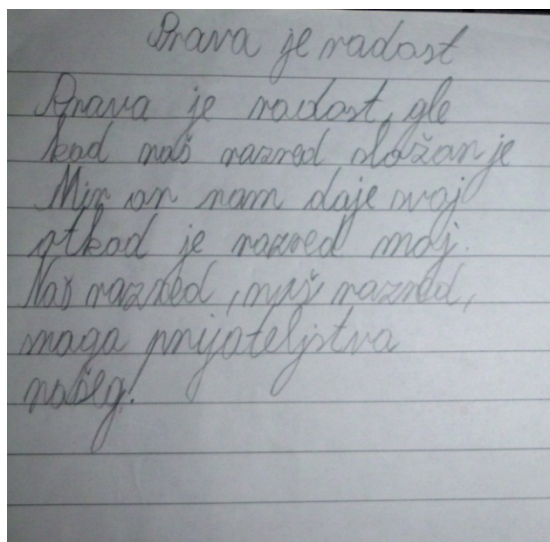 Prava je radost
Prava je radost, gle
kad naš razred složan je
Mir on nam daje svoj
otkad je razred moj.
Naš razred, naš razred,
snaga prijateljstva
našeg!